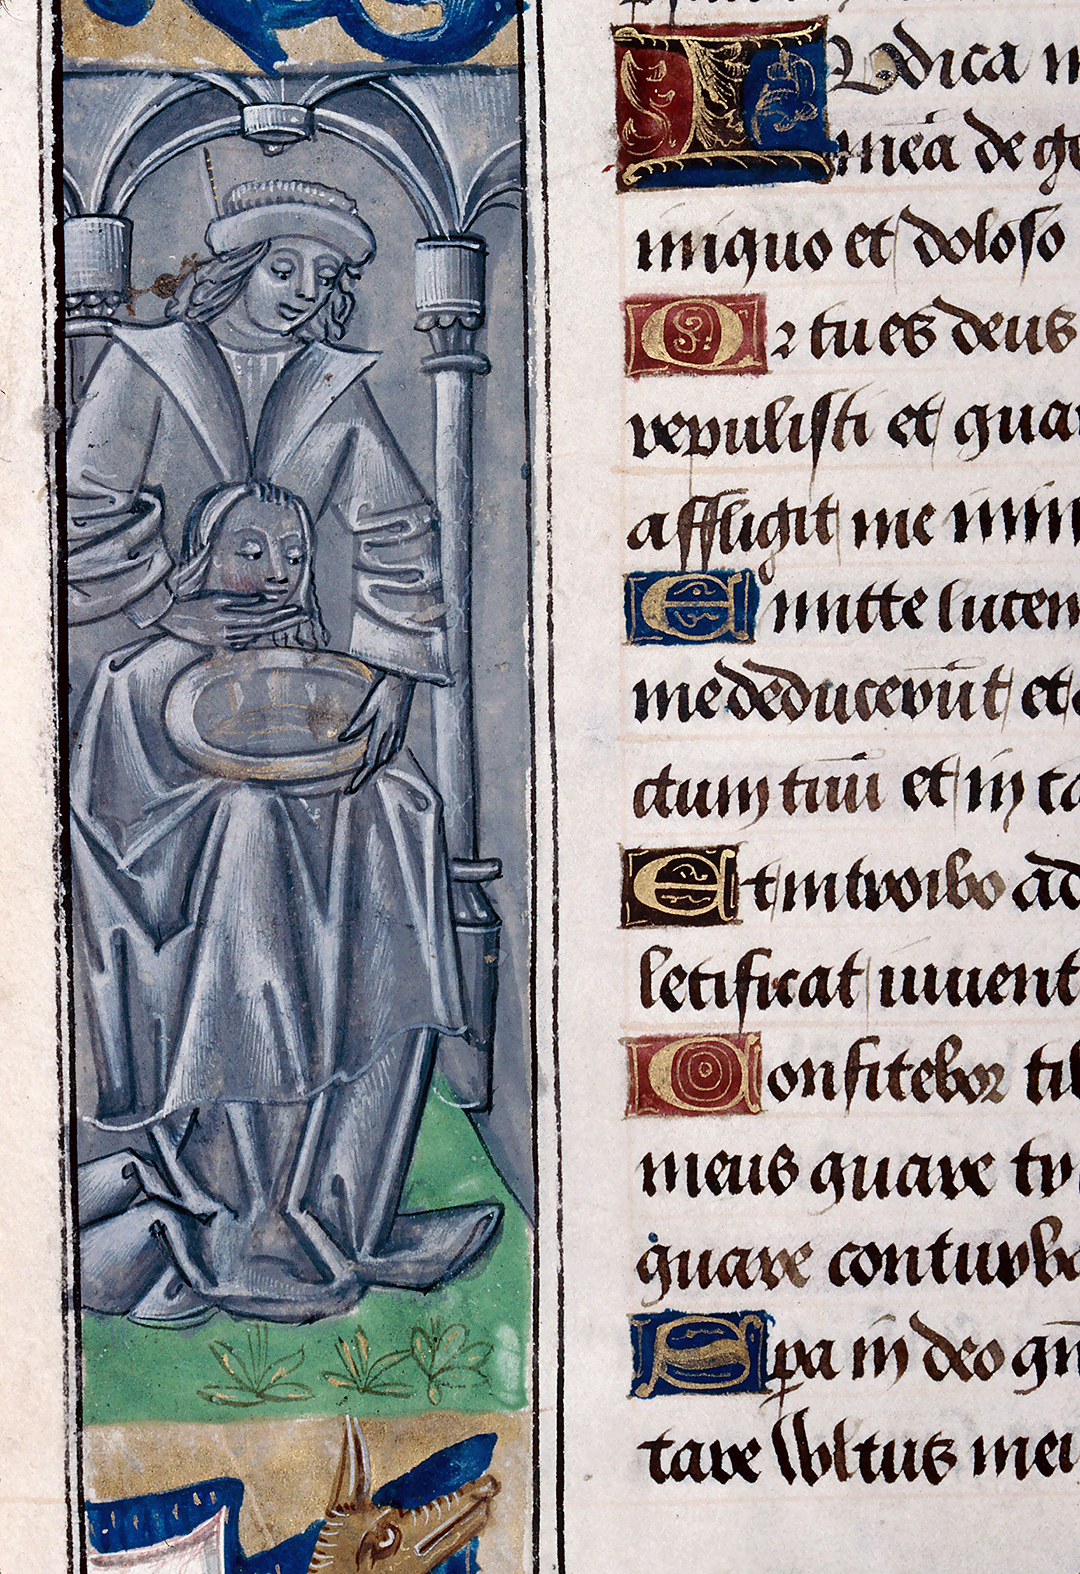 Iudica m
meā de ge
iniquo et doloso
Qr tu es deus
repulisti et quar
affligit me inim
Emitte lucem
me deduxerūt et
ctum tuū et in ta
Et introibo ad
letificat iuuent
Confitebor tib
meus quare tr
quare conturba
Spa in deo qn
tare vultus mei